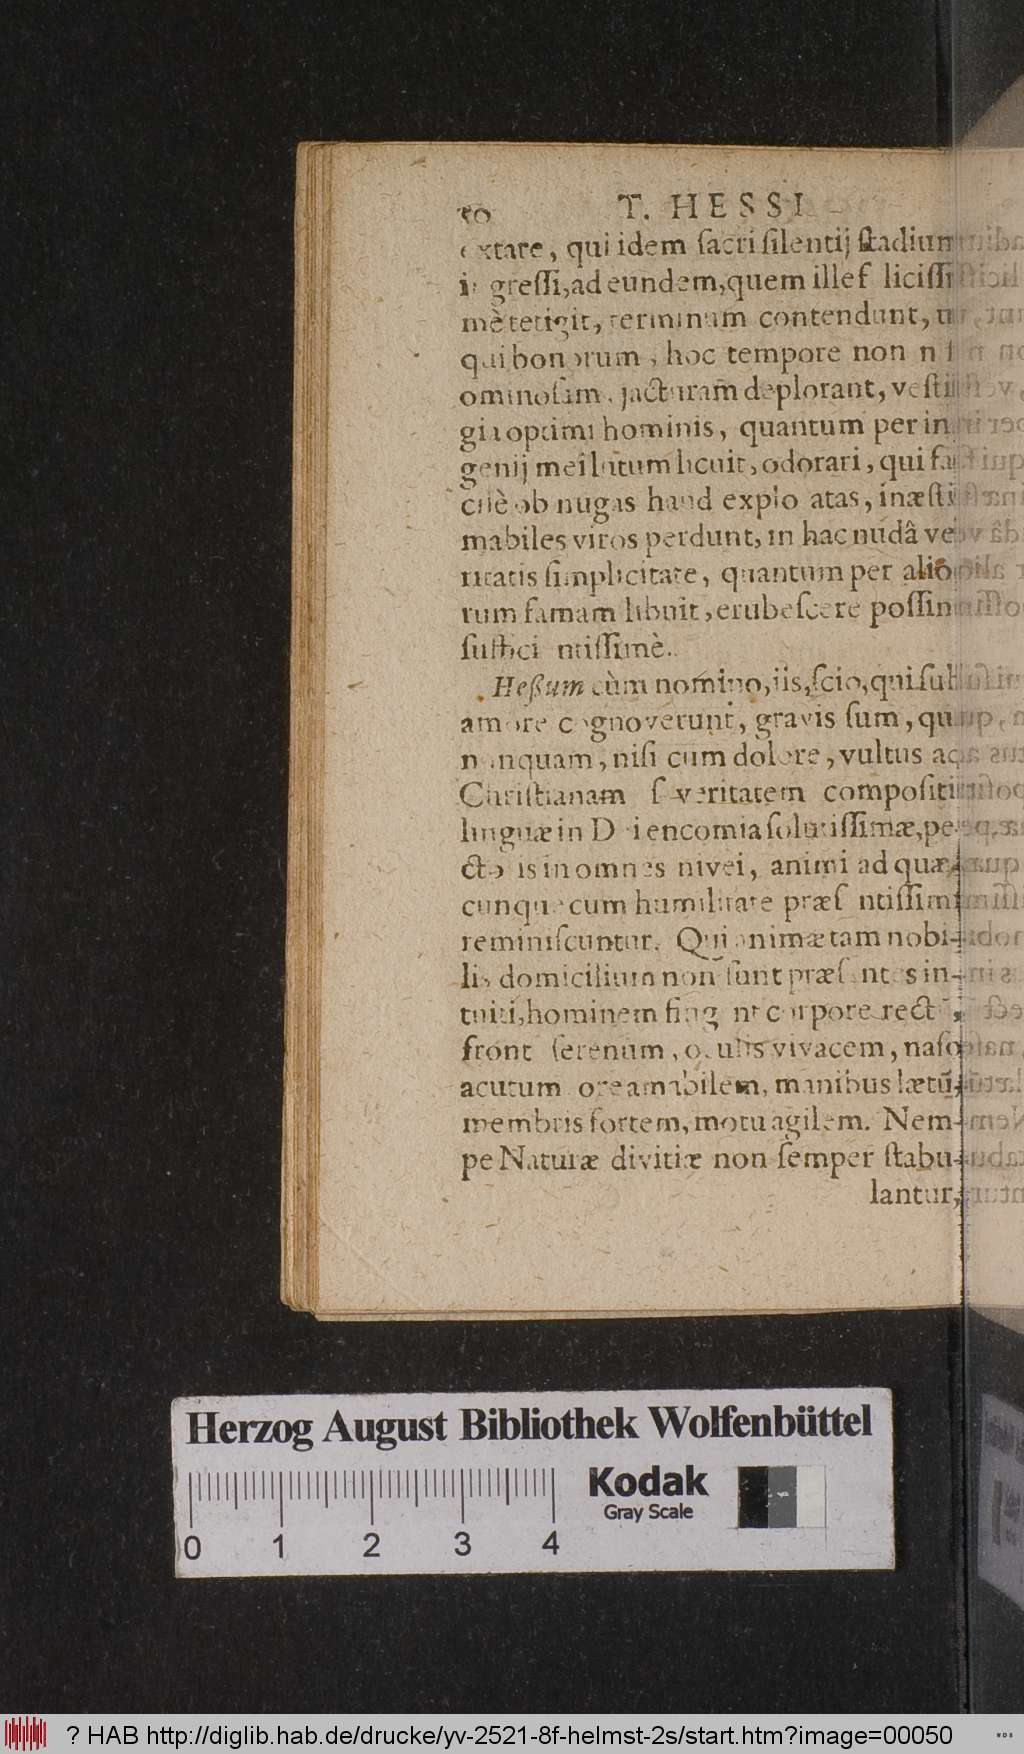 50 T. HESSI
extare, qui idem ſacri ſilentij ſtadium
in greſſi, ad eundem, quem ille f liciſſi
mè tetigit, terminum contendunt, ut
qui bonorum, hoc tempore non n
ominoſam, jacturam deplorant, veſti
gia optimi hominis, quantum per in
genij mei lutum licuit, odorari, qui fa
cilè ob nugas haud explo atas, inæſti
mabiles viros perdunt, in hac nudâ ve
ritatis ſimplicitate, quantum per alio
rum famam libuit, erubeſcere poſſint
ſuffici ntiſſimè.
Heßum cùm nomino, iis, ſcio, qui ſub
amore cognoverunt, gravis ſum, qui
nunquam, niſi cum dolore, vultus ad
Chriſtianam ſ veritatem compoſiti
linguæ in D i encomia ſolutiſſimæ, pe-
cto is in omnes nivei, animi ad quæ-
cunque cum humilitate præſ ntiſſimi
reminiſcuntur. Qui animæ tam nobi-
lis domicilium non ſunt præſ ntes in-
tuiti, hominem fing nt corpore rect
front ſerenum, oculis vivacem, naſo
acutum ore amabilem, manibus lætũ,
membris fortem, motu agilem. Nem-
pe Naturæ divitiæ non ſemper ſtabu-
lantur,
Herzog August Bibliothek Wolfenbüttel
Kodak
Gray Scale
0 1 2 3 4
? HAB http://diglib.hab.de/drucke/yv-2521-8f-helmst-2s/start.htm?image=00050